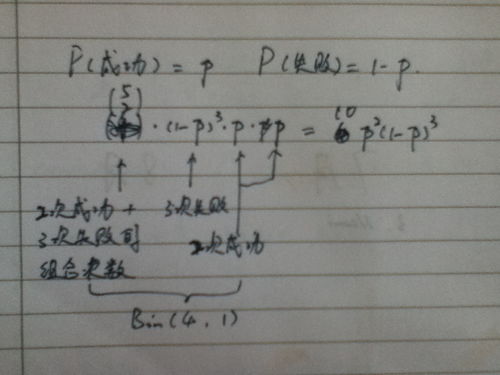 P(成功) = p P(失败) = 1-p.
(5 2) · (1-p)³ · p · p = 10 p²(1-p)³
2次成功 + 3次失败
3次失败可 2次成功
组合次数
Bin(4, 1)